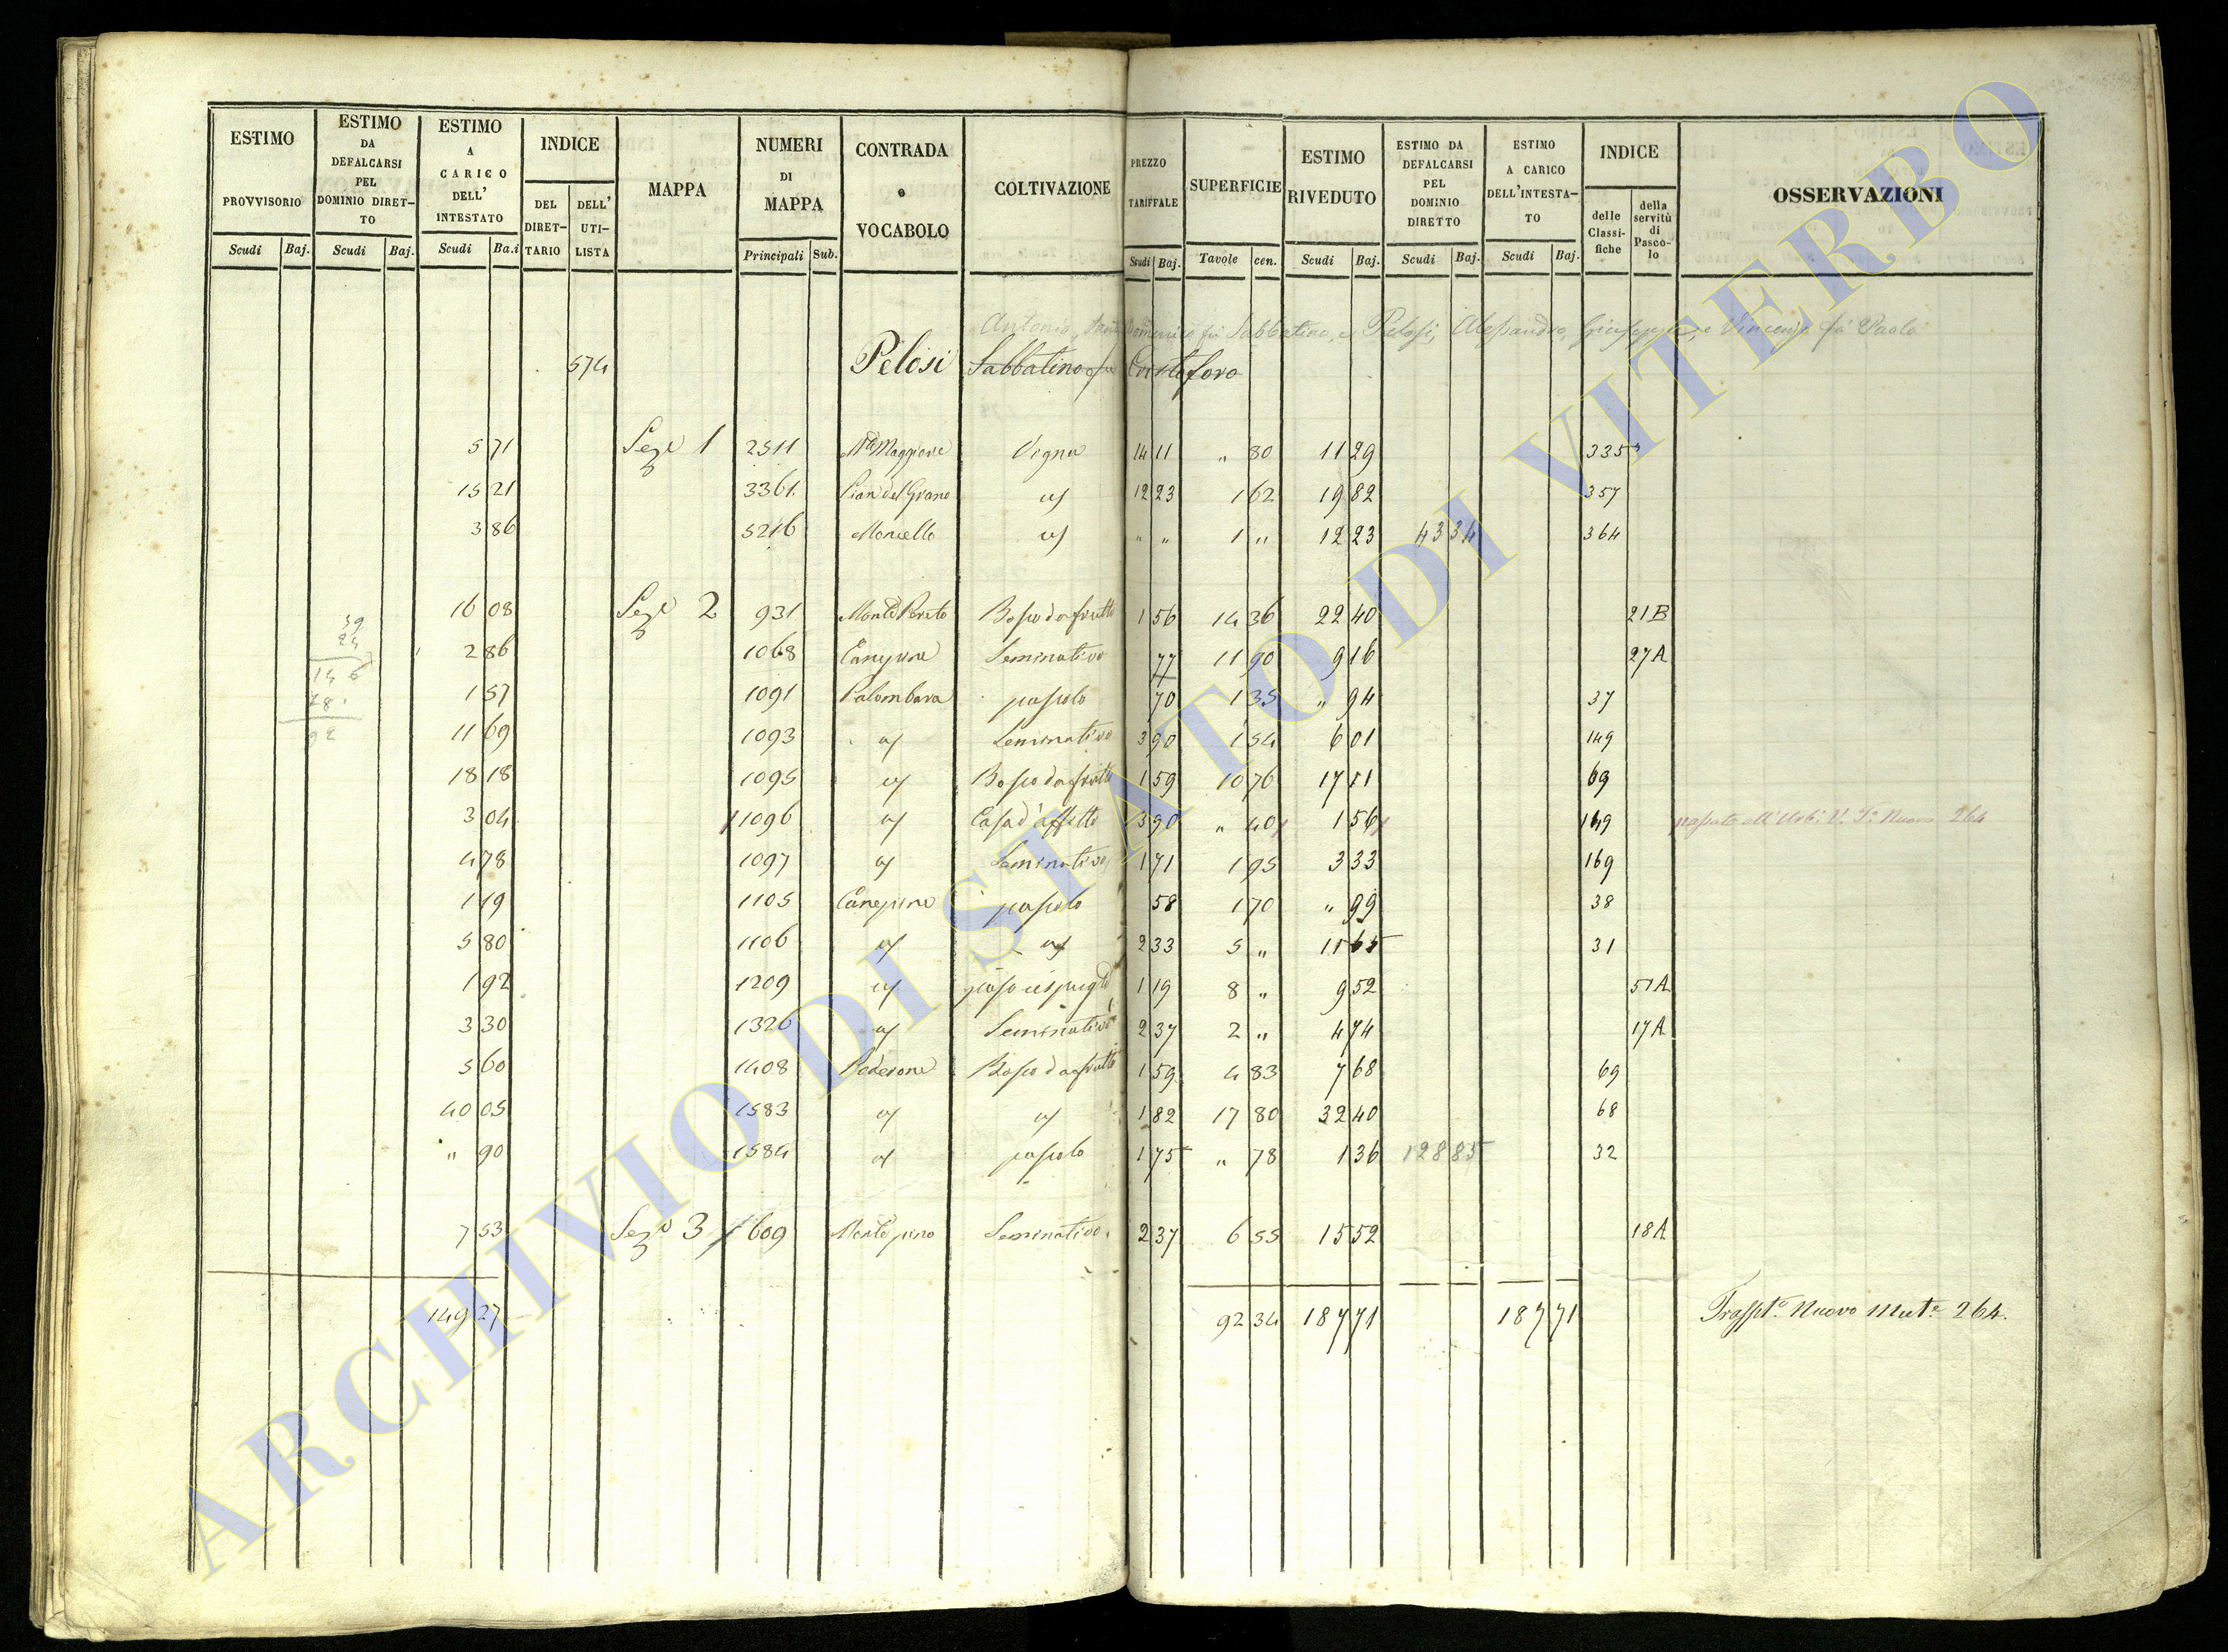 ESTIMO PROVVISORIO
ESTIMO DA DEFALCARSI PEL DOMINIO DIRET-TO
ESTIMO A CARICO DELL' INTESTATO
INDICE
DEL DIRET-TARIO
DELL' UTI-LISTA
MAPPA
NUMERI DI MAPPA
CONTRADA o VOCABOLO
COLTIVAZIONE
PREZZO TARIFFALE
SUPERFICIE
ESTIMO RIVEDUTO
ESTIMO DA DEFALCARSI PEL DOMINIO DIRETTO
ESTIMO A CARICO DELL'INTESTA-TO
INDICE
delle Classi-fiche
della servitù di Pasco-lo
OSSERVAZIONI
Scudi Baj. Scudi Baj. Scudi Ba.i Principali Sub. Scudi Baj. Tavole cen. Scudi Baj. Scudi Baj. Scudi Baj.
Antonio, Domenico fù Sabbatino, e Pelosi, Alessandro, Giuseppe, e Vincenzo fù Paolo
574 Pelosi Sabbatino fu Cristoforo
5 71 Sez.e 1 2511 Maggiore Vigna 14 11 " 80 11 29 335
15 21 3361 Pian del Grano 12 23 1 62 19 82 357
3 86 5216 Moncello " " 1 " 12 23 43 34 364
16 08 Sez.e 2 931 Bosco da frutto 1 56 14 36 22 40 21B
39
24
2 86 1068 Seminativo 77 11 90 9 16 27A
1 57 1091 Palombara pascolo 70 1 35 " 94 37
11 69 1093 Seminativo 3 90 1 54 6 01 149
92
18 18 1095 Bosco da frutto 1 59 10 76 17 11 69
3 04 1096 Casa d'affitto 3 90 " 40 1 56 149 264
4 78 1097 Seminativo 1 71 1 95 3 33 169
1 19 1105 pascolo 58 1 70 " 99 38
5 80 1106 2 33 5 " 11 65 31
1 92 1209 1 19 8 " 9 52 51A
3 30 1326 Seminativo 2 37 2 " 4 74 17A
5 60 1408 Bosco da frutto 1 59 4 83 7 68 69
40 05 1583 1 82 17 80 32 40 68
" 90 1584 pascolo 1 75 " 78 1 36 128 85 32
7 53 Sez.e 3 609 Seminativo 2 37 6 55 15 52 18A
149 27 92 34 187 71 187 71 Nuovo 264.
ARCHIVIO DI STATO DI VITERBO